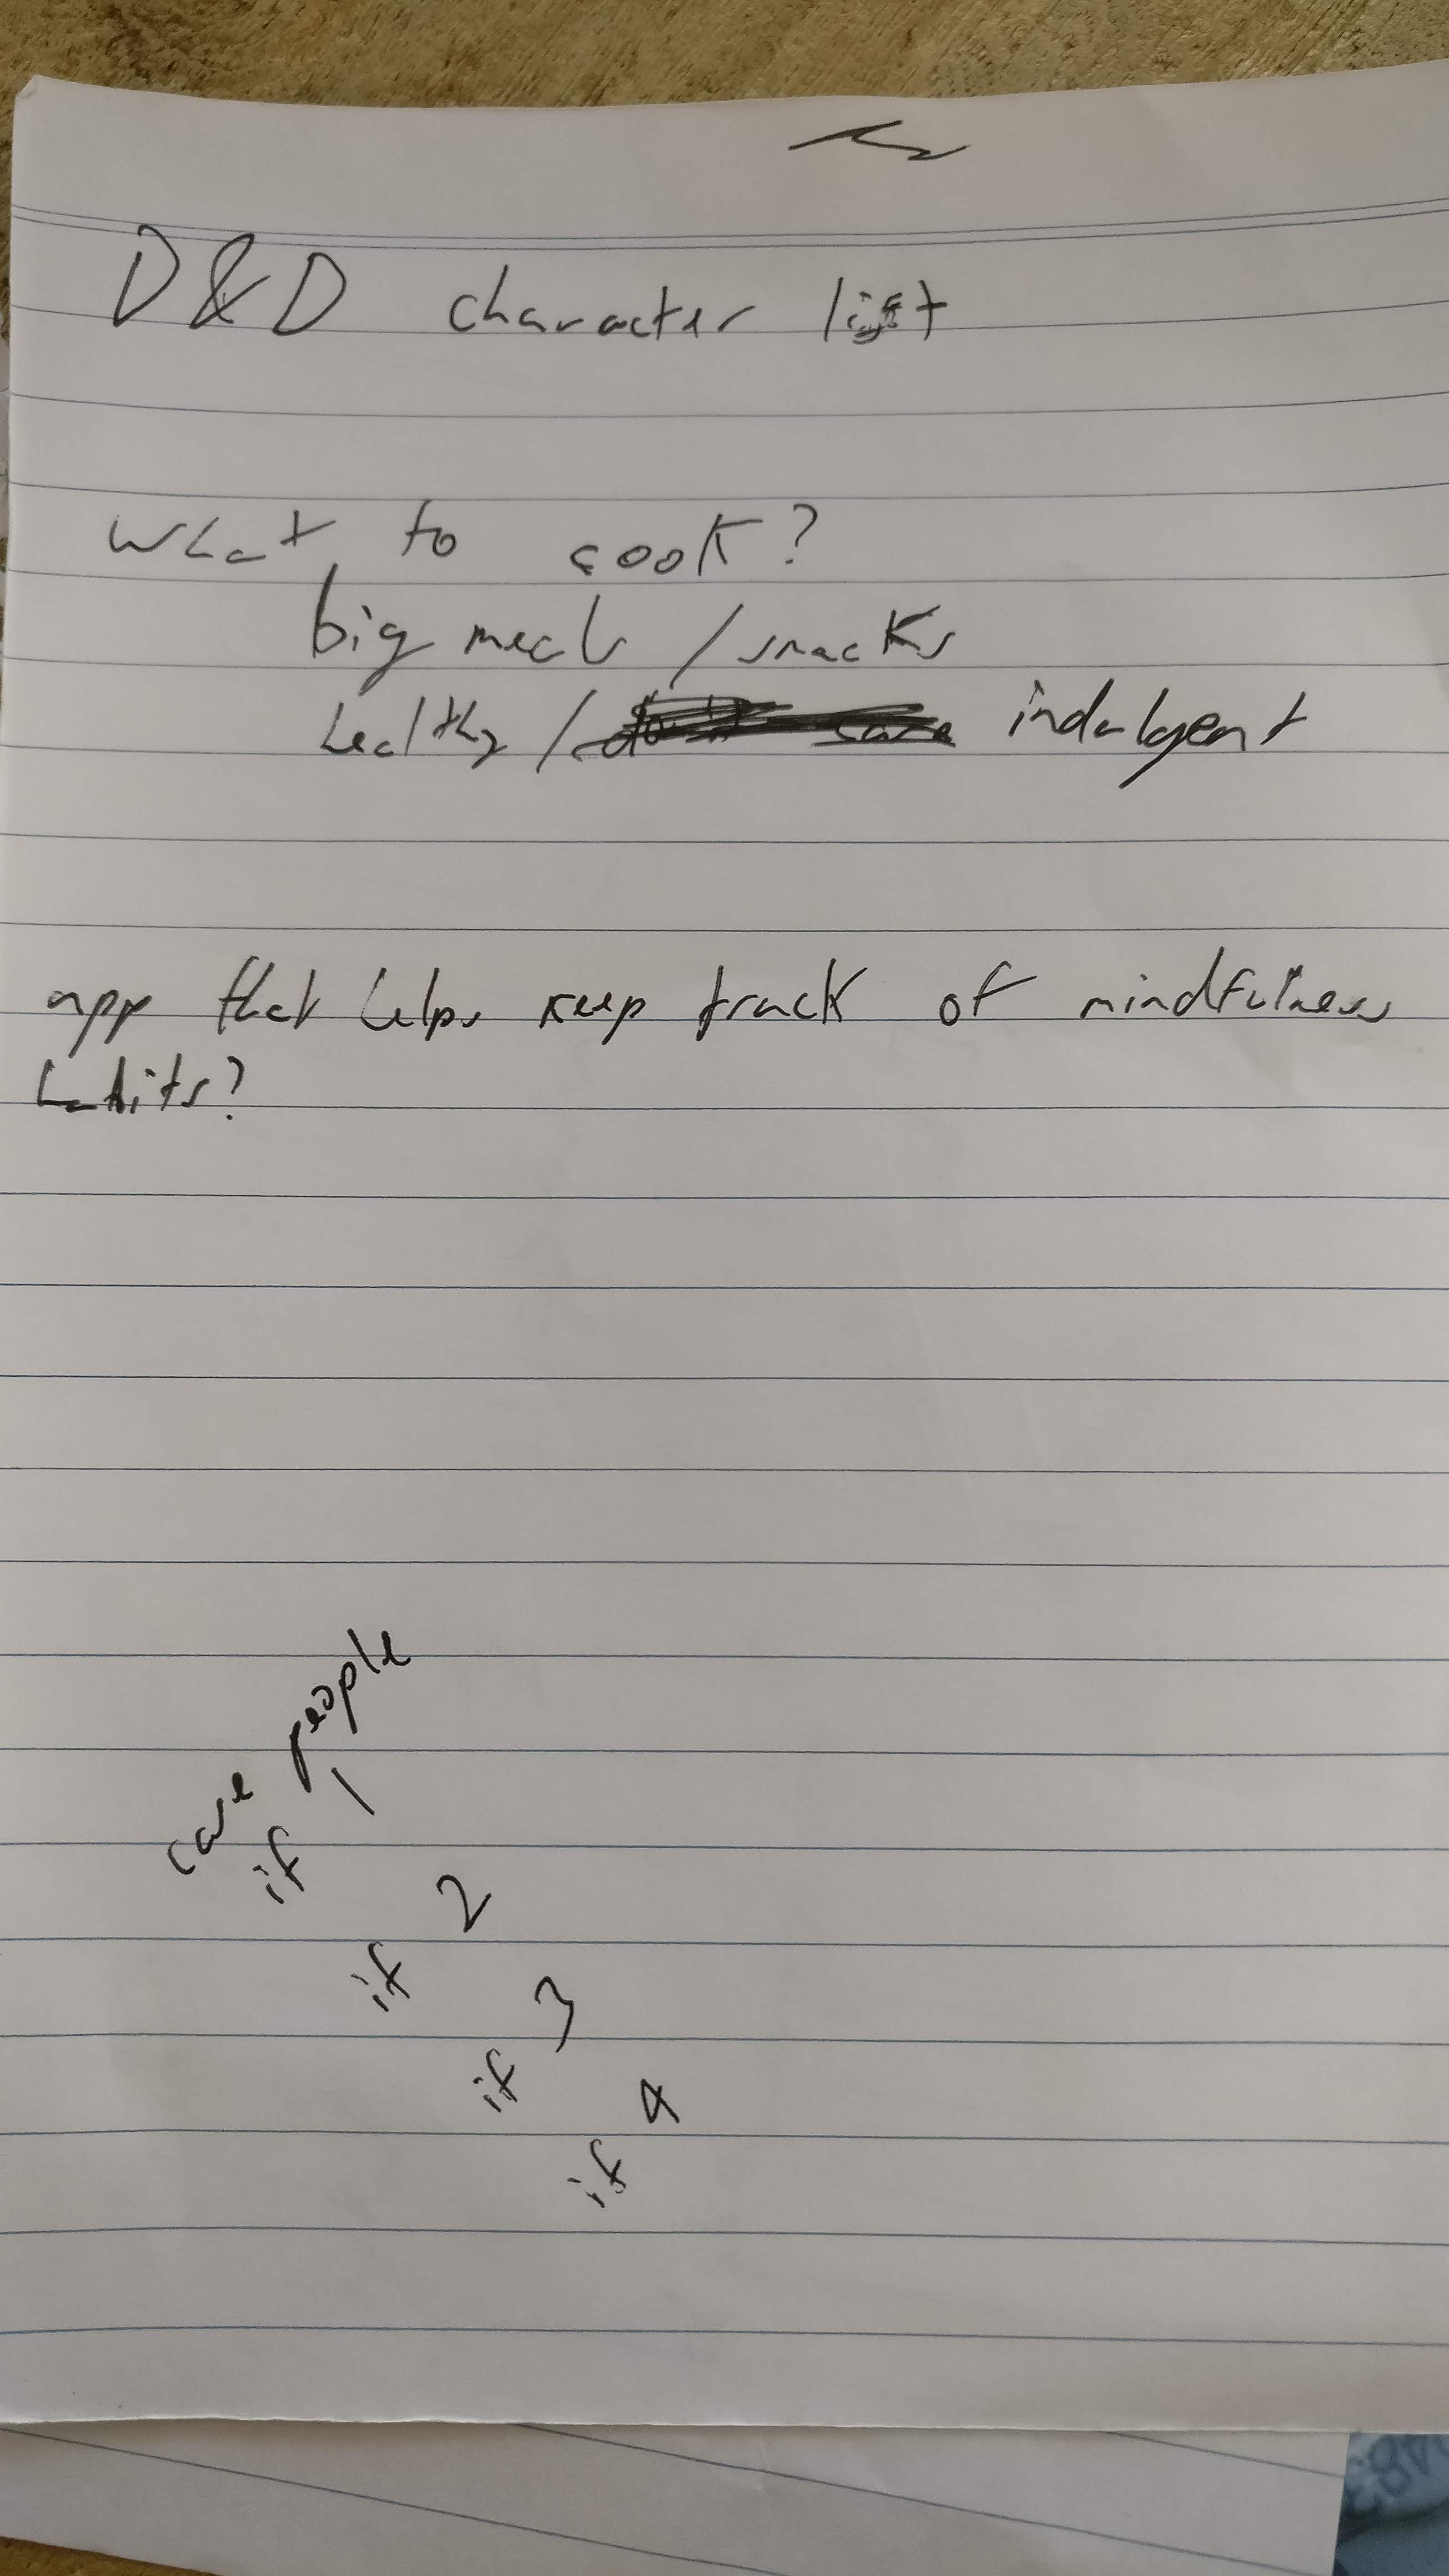 D&D character list
What to cook?
big meals / snacks
healthy / indulgent
app that helps keep track of mindfulness
habits?
case people
if 1
if 2
if 3
if 4